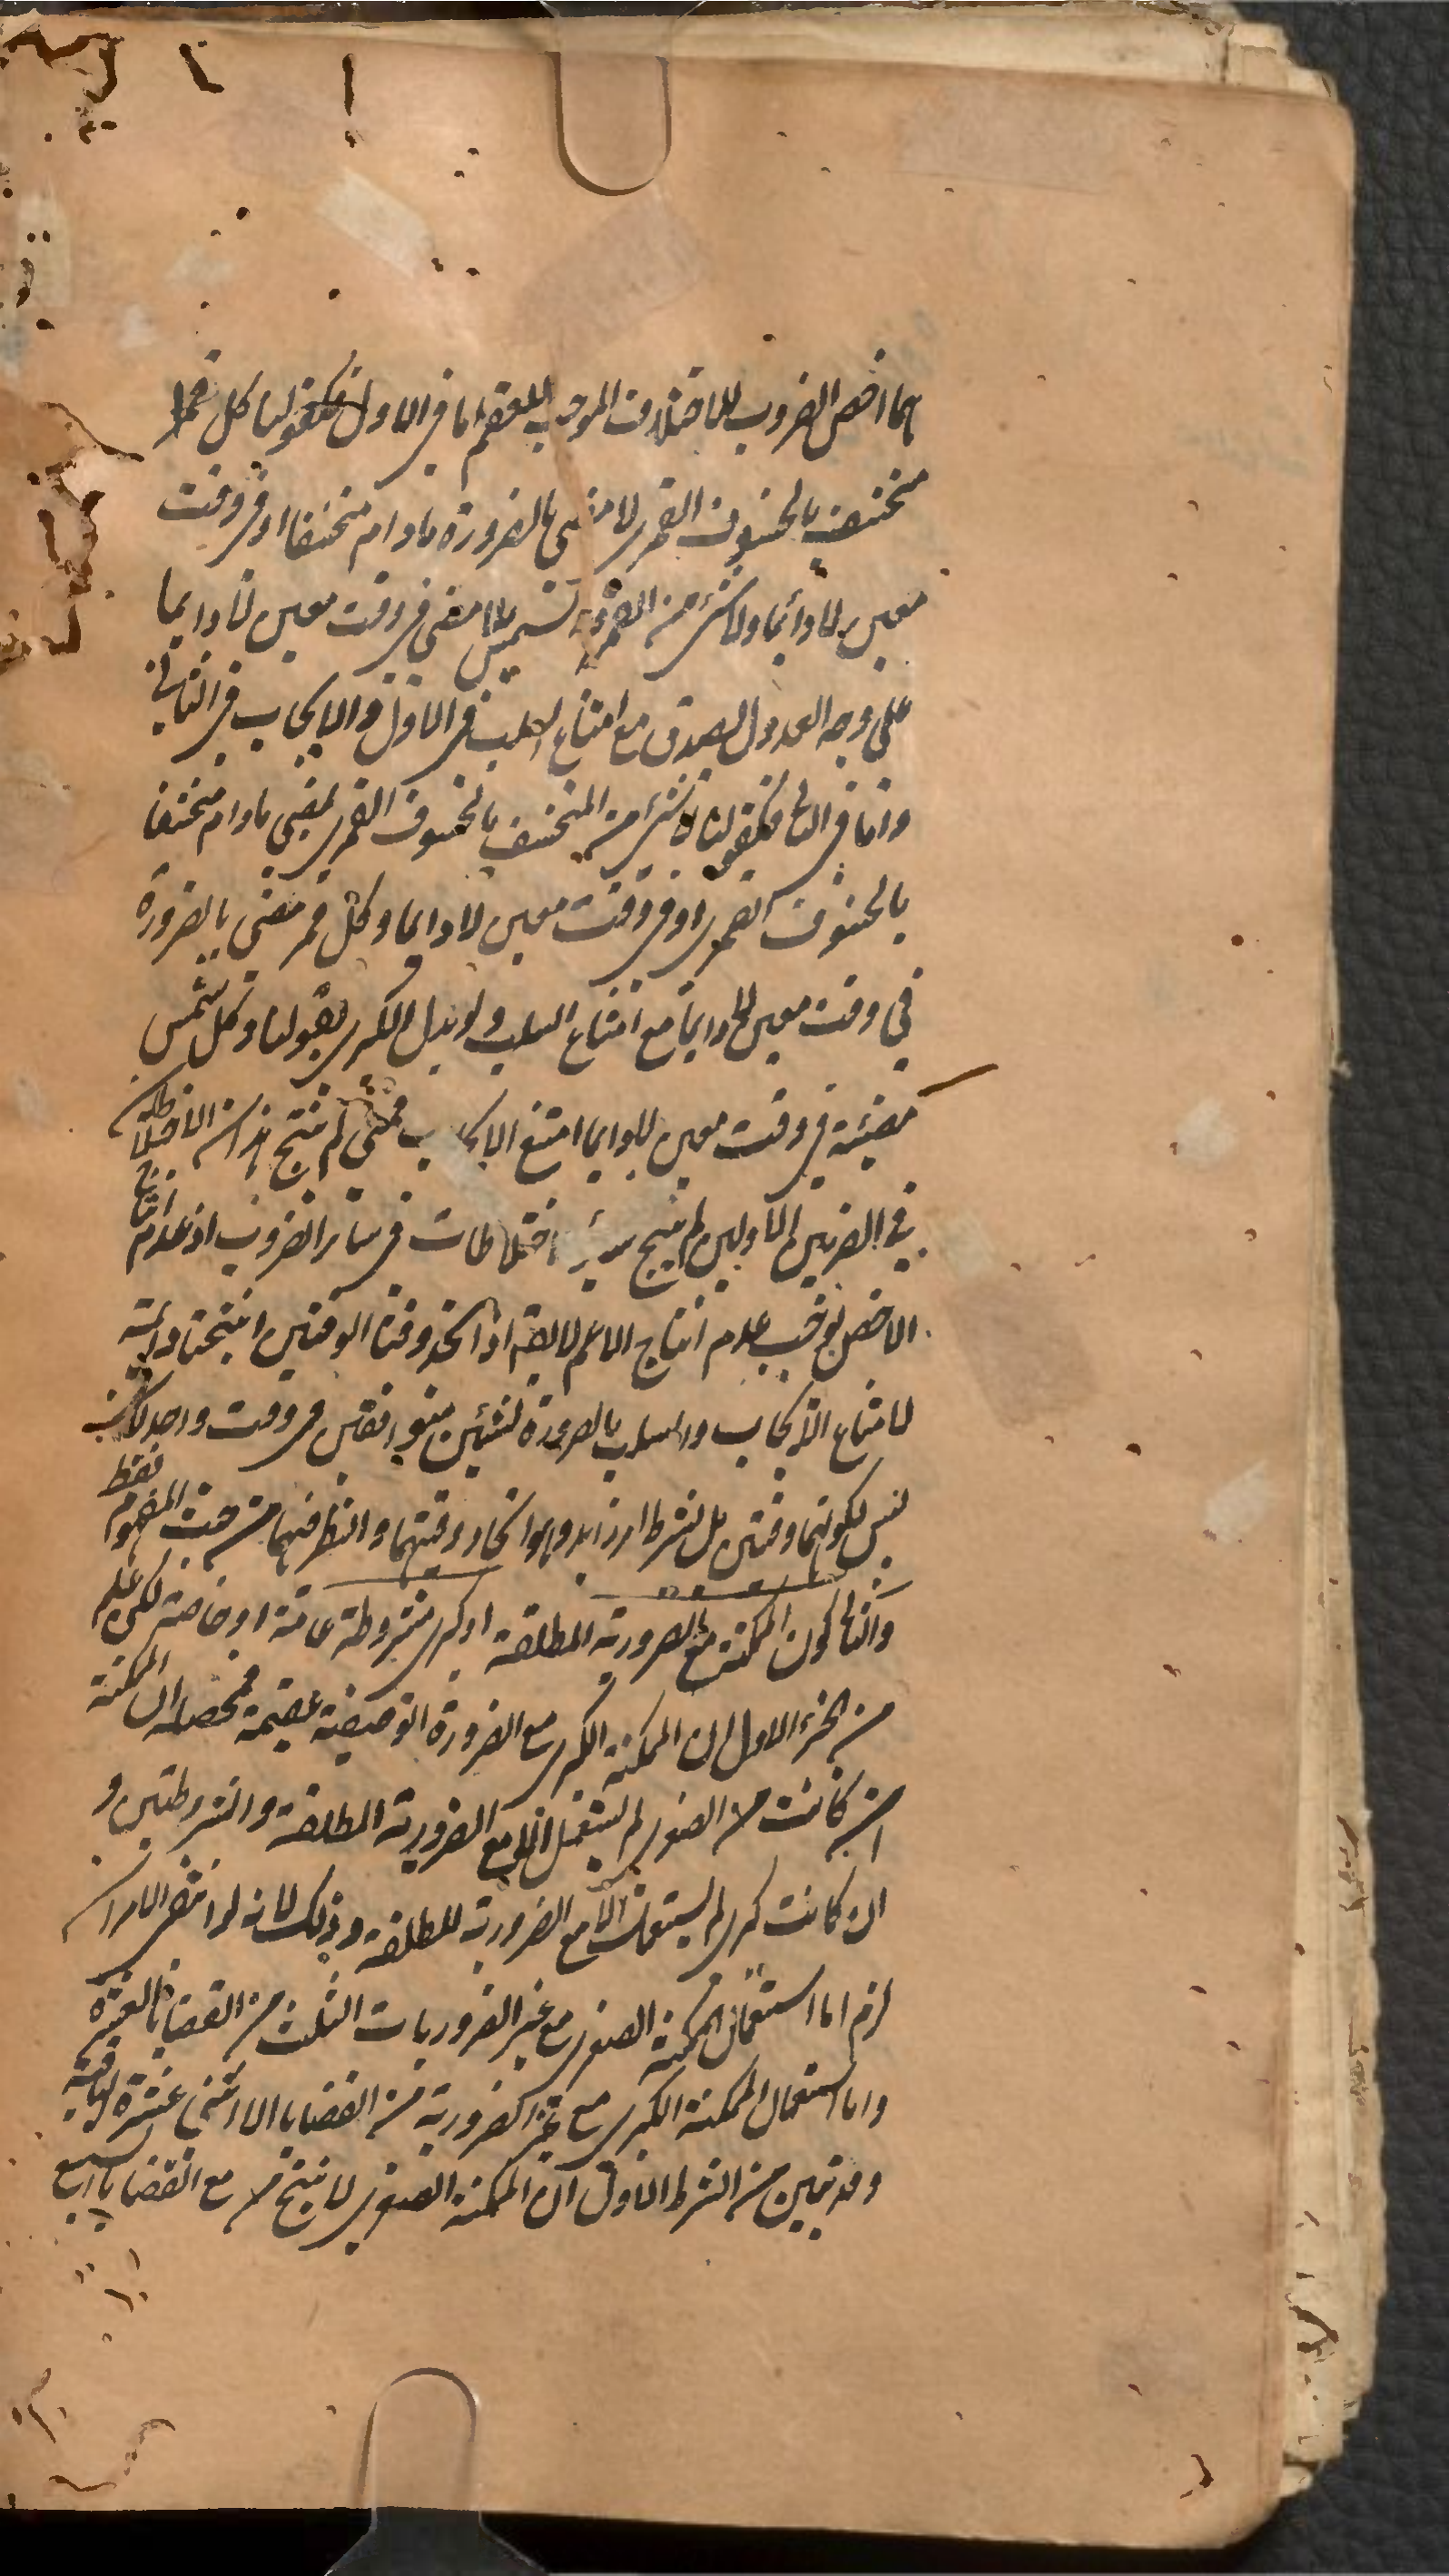 هما اخص الضروب للاختلاف الموجب للعقم اما فى الاول فكقولنا كل قمر
منخسف بالخسوف القمرى لا مضئ بالضرورة مادام منخسفا او فى وقت
معين لا دائما ولا شئ من القمر بشمس لا مضئ فى وقت معين لا دايما
على وجه العدول لصدق مع امتناع السلب فى الاول والايجاب فى الثانى
واما فى الثانى فكقولنا لا شئ من المنخسف بالخسوف القمرى بمضئ مادام منخسفا
بالخسوف القمرى او فى وقت معين لا دايما وكل قمر مضئ بالضرورة
فى وقت معين لا دايما مع امتناع السلب ولو بدل الكبرى بقولنا وكل شمس
مضيئة فى وقت معين لا دايما امتنع الايجاب فمتى لم ينتج هذان الاختلاطان
فى الضربين الاولين لم ينتج سائر اختلاطات فى سائر الضروب اذ عدم انتاج
الاخص يوجب عدم انتاج الاعم لا يقال اذا اتحد وقتا الوقتين انتجتا دائمة
لامتناع الايجاب والسلب بالضرورة لشيئين متوافقين فى وقت واحد لانا نقول
ليس لكونهما وقتيتين بل بشرط امر زايد وهو اتحاد وقتيهما والنظر فيهما من حيث المفهوم فقط
والثانى كون الممكنة مع الضرورية المطلقة او كبرى مشروطة عامة او خاصة لكن علم
من الجزء الاول ان الممكنة الكبرى مع الضرورة الوصفية عقيمة فمحصله ان الممكنة
ان كانت صغرى لم يستعمل الا مع الضرورية المطلقة والمشروطتين و
ان كانت كبرى لم يستعمل الا مع الضرورية المطلقة وذلك لانه لو انتفى الامران
لزم اما استعمال الممكنة الصغرى مع غير الضروريات الثلث من القضايا العشرة
واما استعمال الممكنة الكبرى مع غير الضرورية من القضايا الاثنى عشرة الباقية
وقد تبين من الشرط الاول ان الممكنة الصغرى لا ينتج مع القضايا السبع